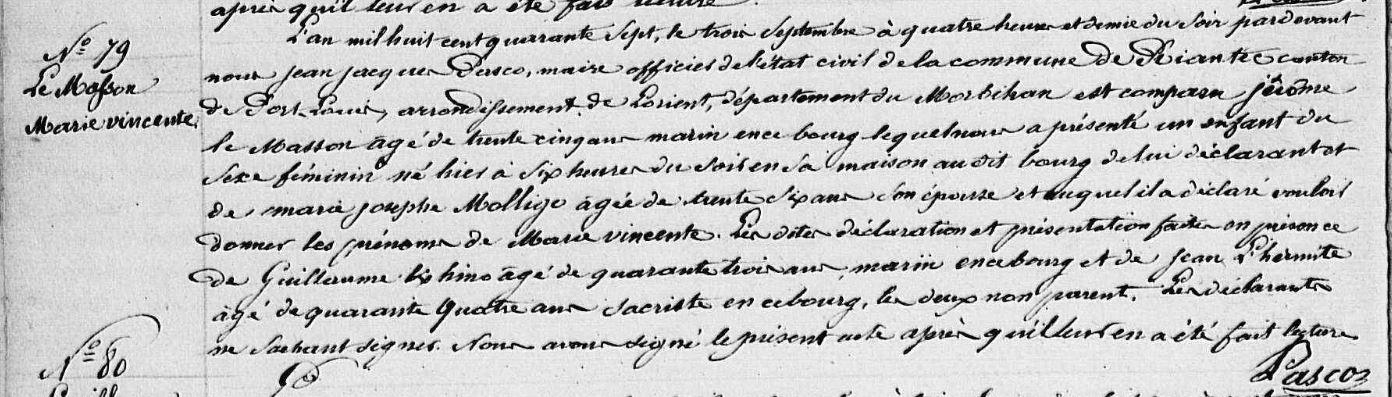 après qu'il leur en a été fait lecture.
N° 79
Le Masson
Marie vincente
L'an mil huit cent quarante Sept, le trois Septembre à quatre heures et demie du Soir pardevant
nous Jean Jacques Pasco, maire officier de l'état civil de la commune De Riantec canton
de Port-Louis, arrondissement de Lorient, département du Morbihan est comparu Jérôme
le Masson âgé de trente cinq ans marin en ce bourg lequel nous a présenté un enfant du
Sexe féminin né hier à Six heures du Soir en Sa maison au dit bourg de lui déclarant et
de marie Josephe Molligo agée de trente Six ans Son épouse et auquel il a déclaré vouloir
donner les prénoms de Marie vincente. Les dites déclaration et présentation faites en présence
de Guillaume âgé de quarante trois ans marin en ce bourg et de Jean L'hermite
âgé de quarante quatre ans Sacriste en ce bourg, les deux non parent. Les déclarants
ne Sachant Signer. Nous avons Signé le présent acte après qu'il leur en a été fait lecture
Pasco
N° 80